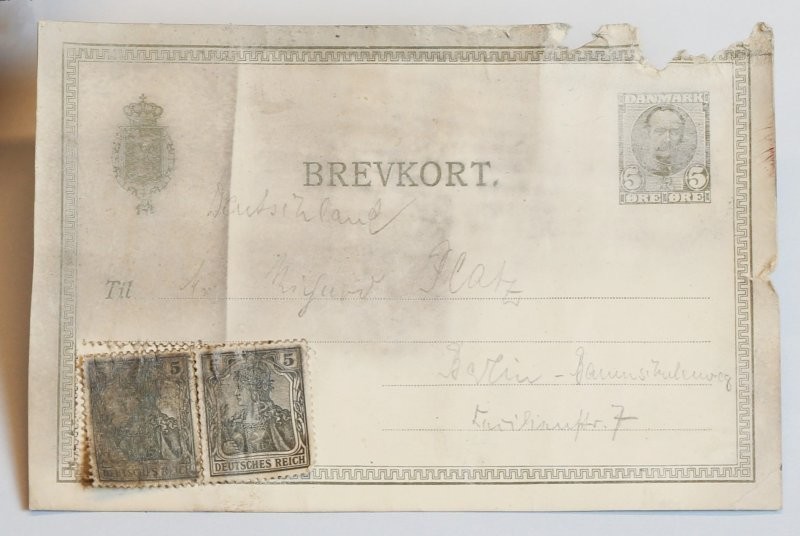 DANMARK
5 5
ØRE ØRE
BREVKORT.
Deutschland
Til Hr Richard Platz
Berlin - Baumschulenweg
7
5
DEUTSCHES REICH
5
DEUTSCHES REICH